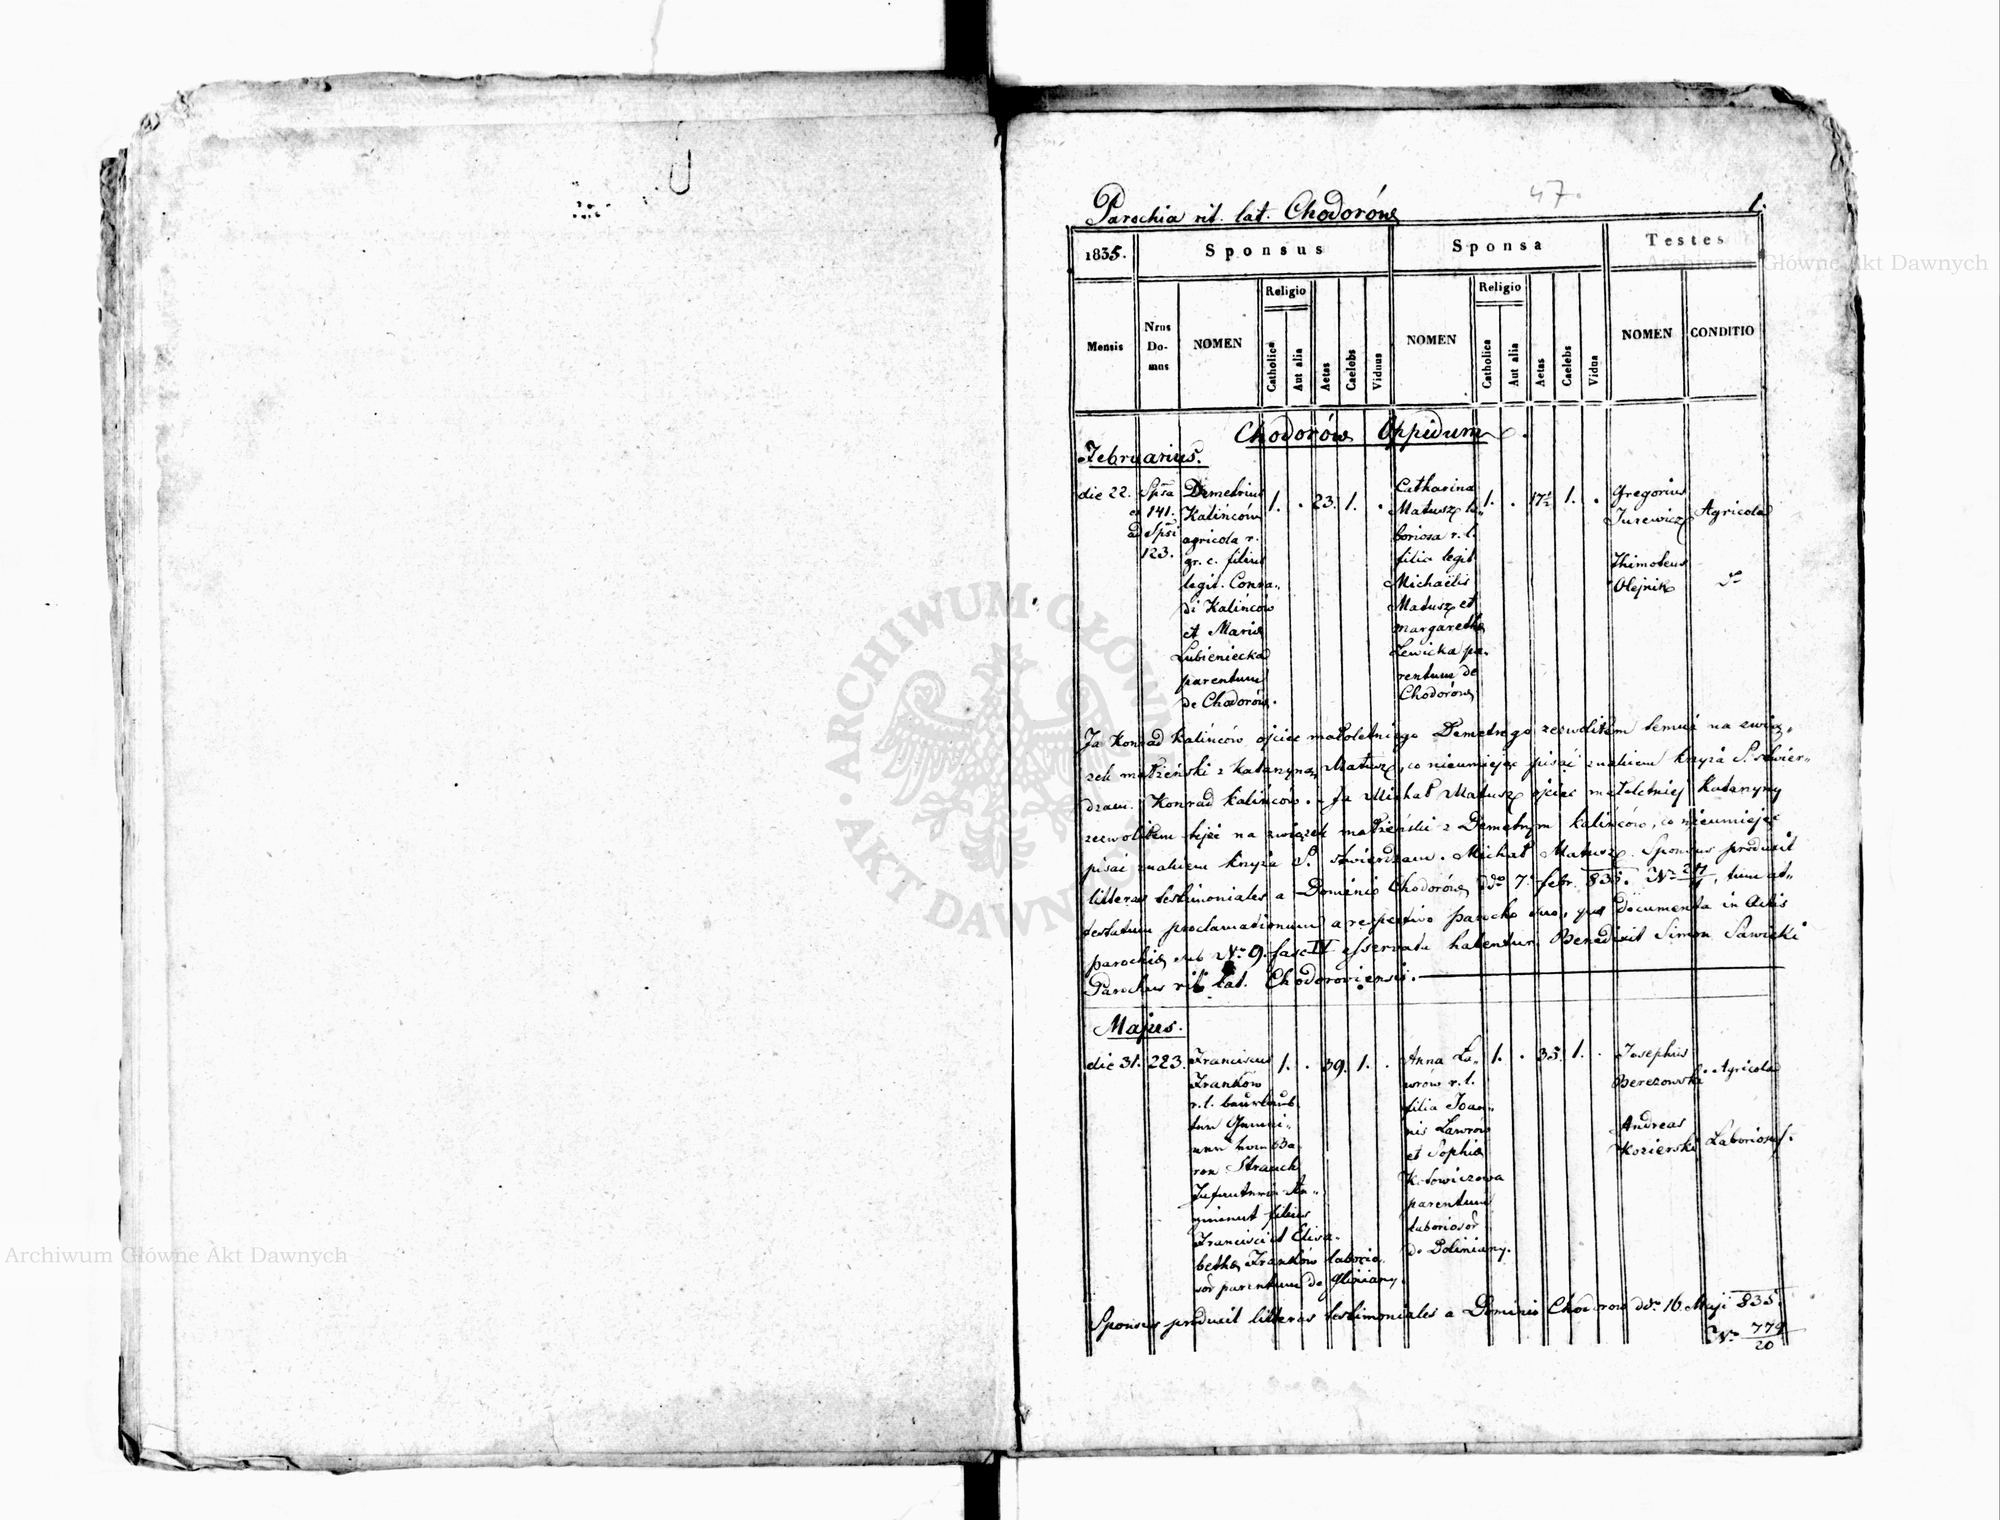 47.
Parochia rit. lat. Chodorów
1.
1835.
Sponsus
Sponsa
Testes
Mensis
Nrus Do-mus
NOMEN
Religio
Catholica
Aut alia
Aetas
Caelebs
Viduus
NOMEN
Religio
Catholica
Aut alia
Aetas
Caelebs
Vidua
NOMEN
CONDITIO
Chodorów Oppidum
Februarius.
die 22.
Spsa
141.
ad Spsi
123.
Demetrius
Kalińców
agricola r.
gr. c. filius
legit. Conra-
di Kalińców
et Maria
Lubieniecka
parentum
de Chodorów.
1. . 23. 1. .
Catharina
Matusz la-
boriosa r. l.
filia legit.
Michaëlis
Matusz et
Margaretha
Lewicka pa-
rentum de
Chodorów
1. . 17½ 1. .
Gregorius
Jurewicz
Agricola
Thimoteus
Olejnik
Ja Konrad Kalińców ojciec małoletniego Demetrego zezwoliłem temuż na zwią-
zek małżeński z Katarzyną Matusz, co nieumiejąc pisać znakiem krzyża S. stwier-
dzam. Konrad Kalińców. Ja Michał Matusz ojciec małoletniej Katarzyny
zezwoliłem tejże na związek małżeński z Demetrym Kalińców, co nieumiejąc
pisać znakiem krzyża S. stwierdzam. Michał Matusz. Sponsus produxit
litteras testimoniales a Dominio Chodorów ddo 7. febr. 835. No, tum at-
testatum proclamationum a respectivo parocho suo, quæ documenta in Actis
parochiæ sub No 9. fasc IV asservata habentur. Benedixit Simon Sawicki
Parochus rit. lat. Chodoroviensis.
Majus.
die 31. 223.
Franciscus
Franków
r. l. beurlaub-
ten
Baron Strauch
Infanterie Re-
giment filius
Francisci et Elisa-
betha Franków laborio
sor parentum de Gliniany.
1. . 39. 1. .
Anna La-
wrów r. l.
filia Joan-
nis Lawrów
et Sophia
Kotowiczowa
parentum
laboriosor
de Doliniany.
1. . 35. 1. .
Josephus
Berezowski
Agricola
Andreas
Kozierski
Laboriosus.
Sponsus produxit litteras testimoniales a Dominio Chodorow ddo 16 Maji 835.
No 779/20
Archiwum Główne Akt Dawnych
Archiwum Główne Akt Dawnych
ARCHIWUM GŁÓWNE AKT DAWNYCH